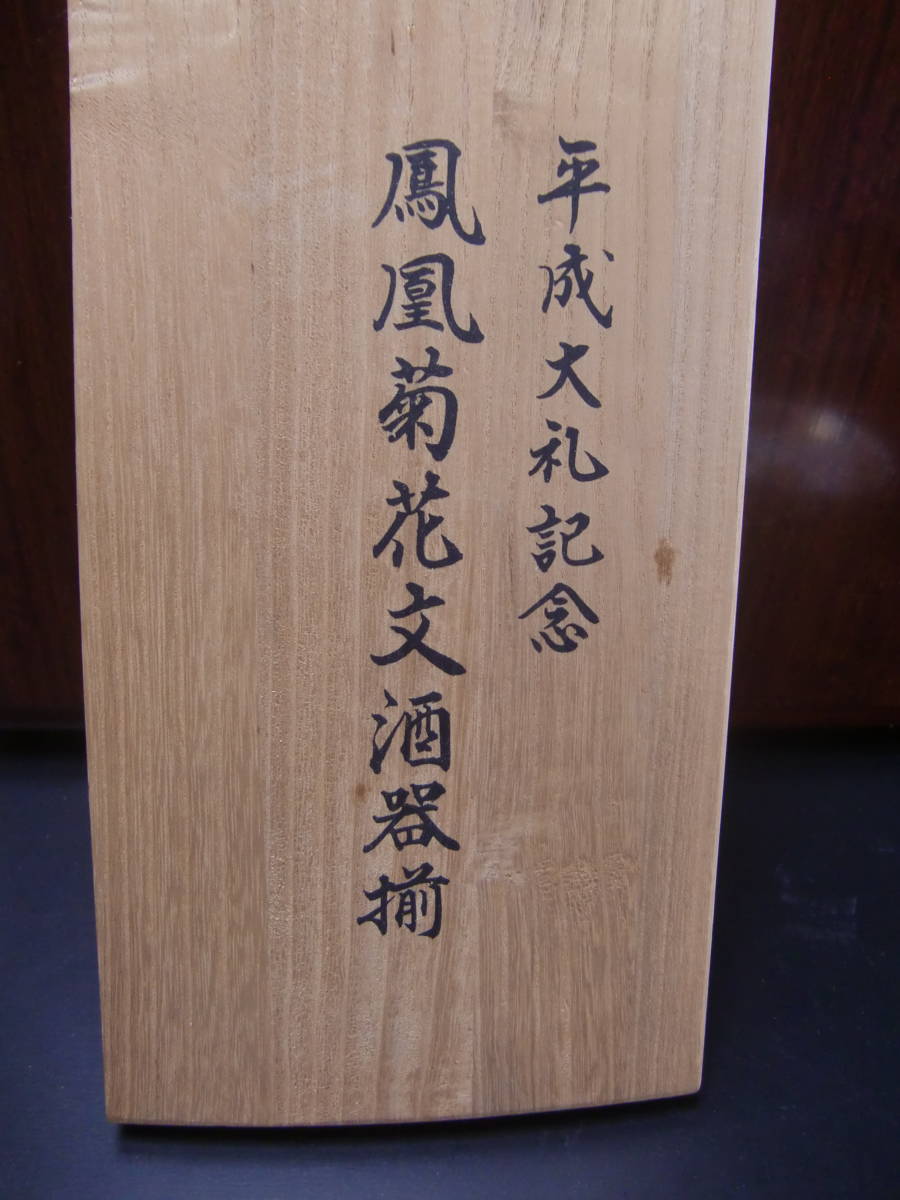 平成大礼記念
鳳凰菊花文酒器揃